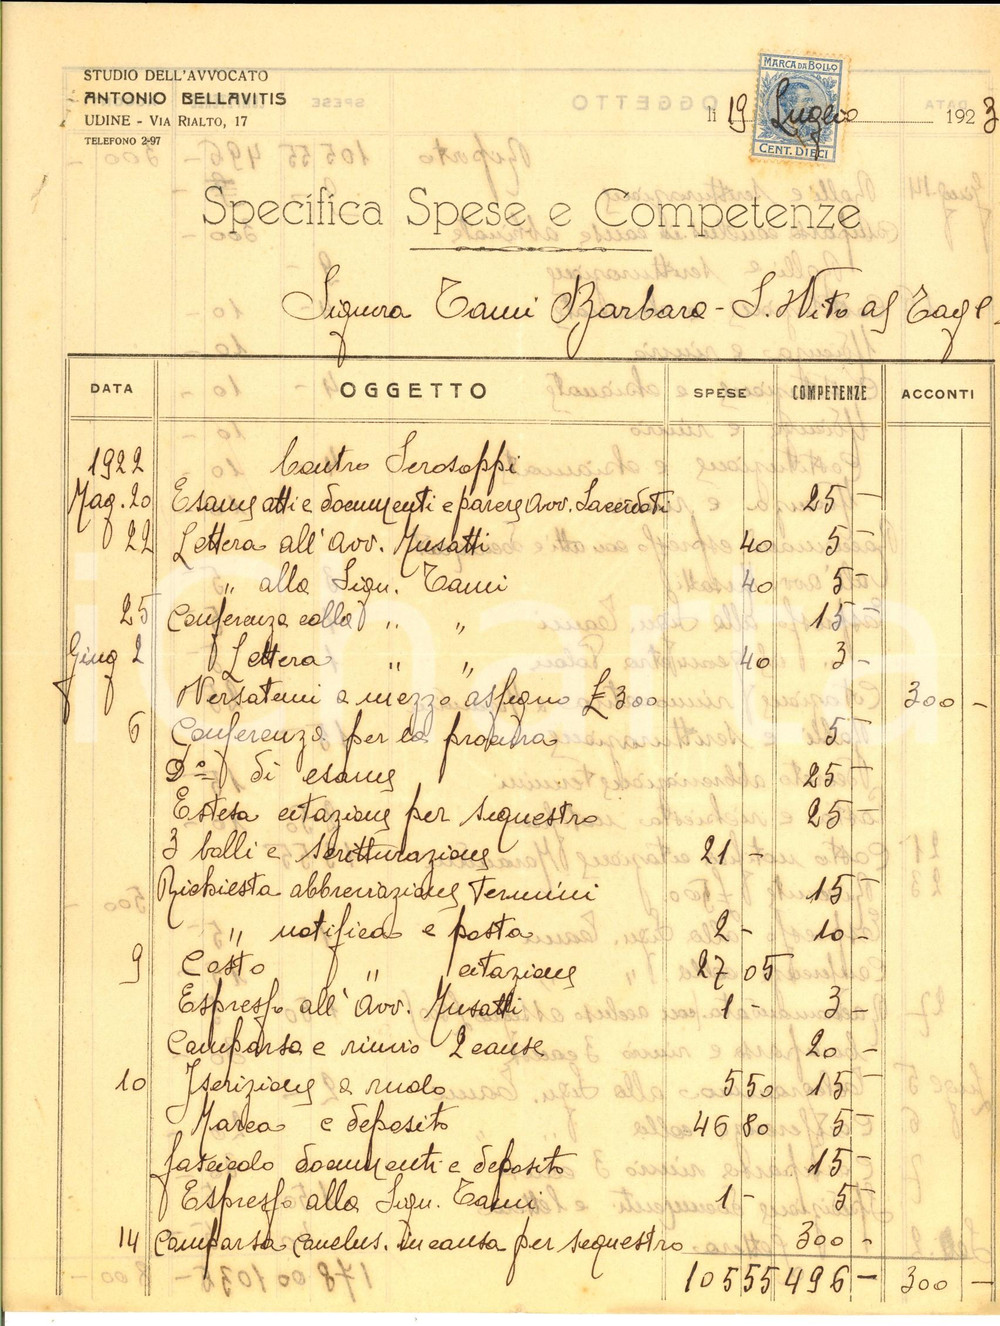 STUDIO DELL'AVVOCATO
ANTONIO BELLAVITIS
UDINE - VIA RIALTO, 17
TELEFONO 2-97
MARCA DA BOLLO
CENT. DIECI
li 19 Luglio 1923
Specifica Spese e Competenze
Signora Tami Barbara - S. Vito al Tagl.
DATA OGGETTO SPESE COMPETENZE ACCONTI
1922 Contro Serosoppi
Mag. 20 Esame atti e documenti e parere Avv. Sacerdoti 25 -
22 Lettera all'Avv. Musatti 40 5 -
" alla Sign. Tami 40 5 -
25 Conferenza colla " " 15 -
Giug 2 Lettera " " 40 3 -
Versatemi a mezzo assegno £ 300 300 -
6 Conferenza per la procura 5 -
Do di esame 25 -
Estesa citazione per sequestro 25 -
3 bolli e scritturazione 21 -
Richiesta abbreviazione Termini 15 -
" notifica e posta 2 - 10 -
9 Costo " citazione 27 05
Espresso all'Avv. Musatti 1 - 3 -
Comparsa e rinvio 2 cause 20 -
10 Iscrizione a ruolo 5 50 15 -
Marca e deposito 46 80 5 -
fascicolo documenti e deposito 15 -
Espresso alla Sign. Tami 1 - 5 -
14 Comparsa conclus. in causa per sequestro 300 -
105 55 496 - 300 -